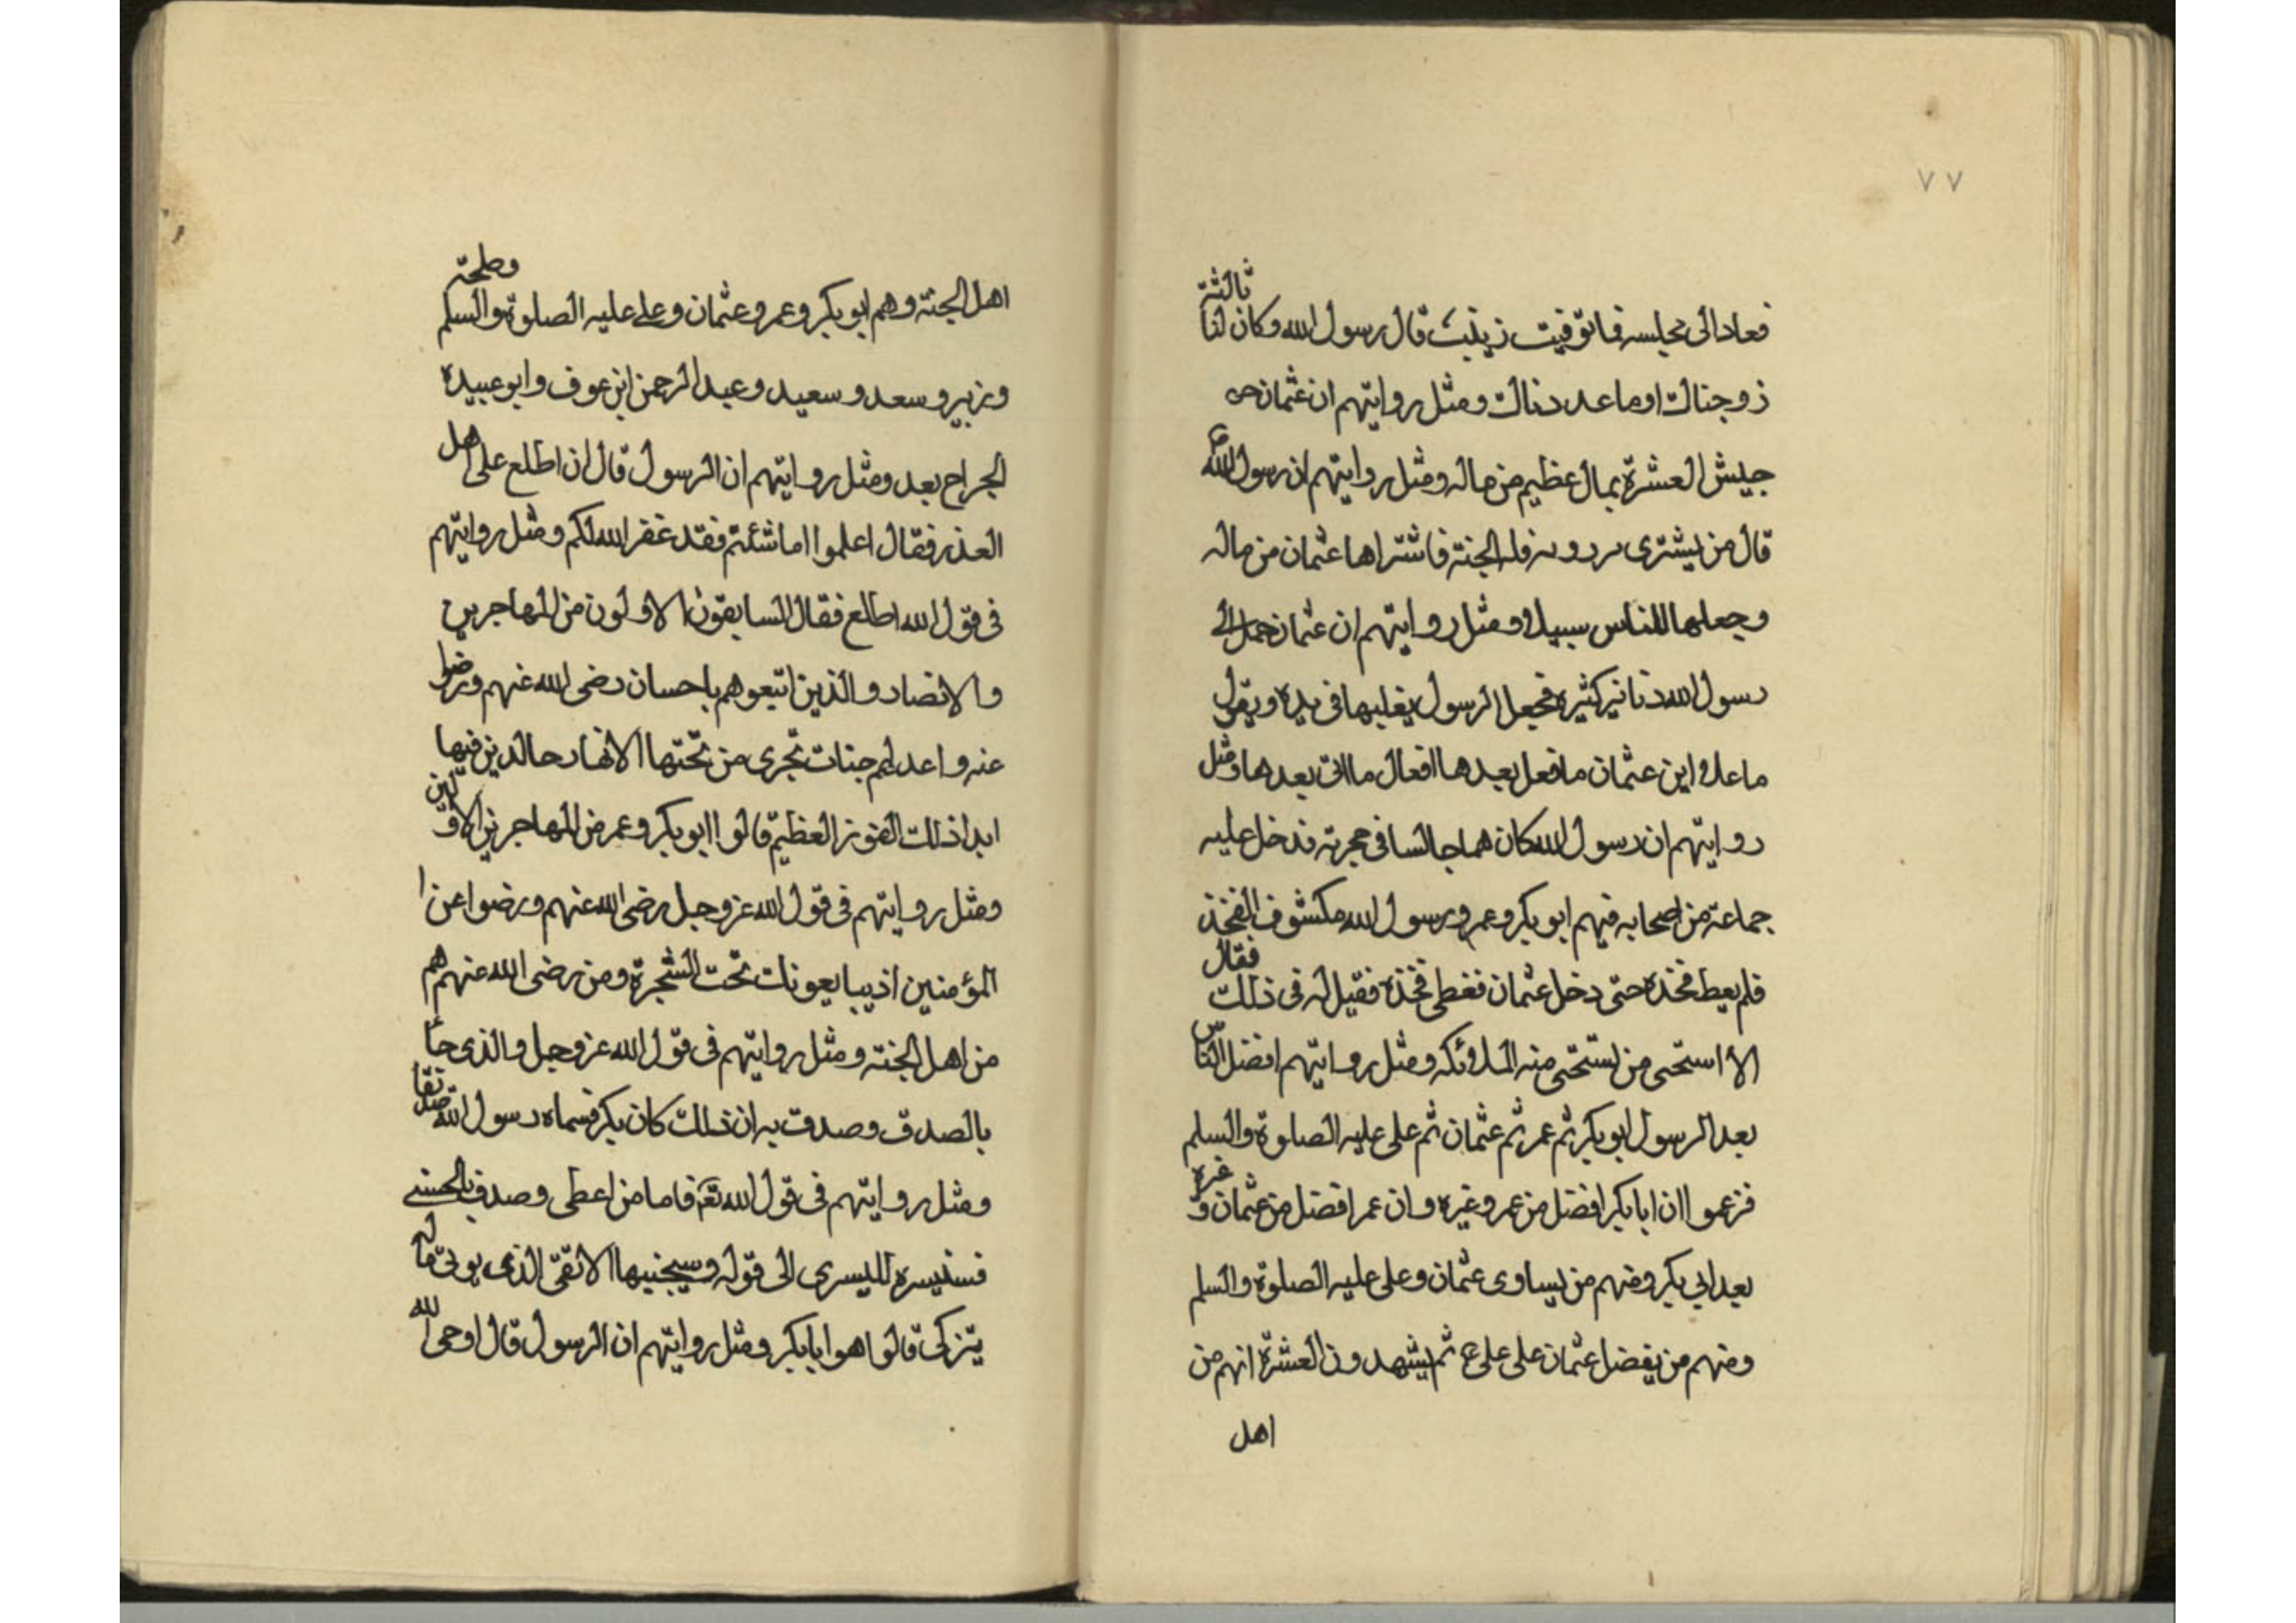 ٧٧
فعادالى مجلسه فماتوفيت زينب قال رسول الله وكان لنا ثالثة
زوجناك اوما عددناك ومثل روايتهم ان عثمان
جيش العشرة بمال عظيم من ماله ومثل روايتهم ان رسول الله ص
قال من يشترى فله الجنة فاشتراها عثمان من ماله
وجعلها للناس سبيلا ومثل روايتهم ان عثمان حمل الى
رسول الله دنانير كثيرة فجعل الرسول يغلبها فى يده ويقول
ما على ابن عثمان ما فعل بعدها افعال ما اتى بعدها ومثل
روايتهم ان رسول الله كان هما جالسا فى حجرته فدخل عليه
جماعة من اصحابه فيهم ابو بكر وعمر ورسول الله مكشوف الفخذ
فلم يعط فخذه حتى دخل عثمان فغطى فخذه فقيل له فى ذلك فقال
الا استحى من تستحى منه الملائكه ومثل روايتهم افضل الناس
بعد الرسول ابو بكر ثم عمر ثم عثمان ثم على عليه الصلوة والسلم
فزعموا ان ابا بكر افضل من عمر وغيره وان عمر افضل من عثمان وغيره
بعد ابى بكر ومنهم من يساوى عثمان وعلى عليه الصلوة والسلم
ومنهم من يفضل عثمان على على ع ثم يشهدون العشرة انهم من
اهل
اهل الجنة وهم ابو بكر وعمر وعثمان وعلى عليه الصلوة والسلم وطلحة
وزبير وسعد وسعيد وعبد الرحمن ابن عوف وابو عبيدة
الجراح بعد ومثل روايتهم ان الرسول قال ان اطلع على اهل
العذر فقال اعلموا ما شئتم فقد غفر الله لكم ومثل روايتهم
فى قول الله اطلع فقال السابقون الاولون من المهاجرين
والانصار والذين اتبعوهم باحسان رضى الله عنهم ورضوا
عنه واعد لهم جنات تجرى من تحتها الانهار خالدين فيها
ابدا ذلك الفوز العظيم قالوا ابو بكر وعمر من المهاجرين الاولين
ومثل روايتهم فى قول الله عز وجل رضى الله عنهم ورضوا عن ا
المؤمنين اذ يبايعونك تحت الشجرة ومن رضى الله عنهم هم
من اهل الجنة ومثل روايتهم فى قول الله عز وجل والذى جاء
بالصدق وصدق به ان ذلك كان بكر فسماه رسول الله
ومثل روايتهم فى قول الله تع فاما من اعطى وصدق بالحسنى
فسنيسره لليسرى الى قوله وسيجنبها الاتقى الذى يوتى ماله
يتزكى قالوا هو ابا بكر ومثل روايتهم ان الرسول قال اوحى الله